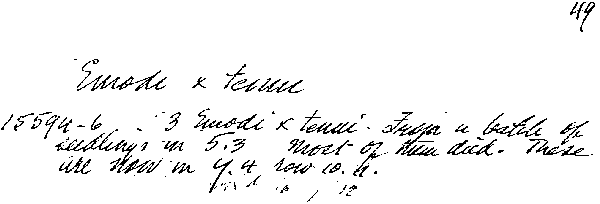 49
Emodi x tenui
15594-6 - 3 Emodi x tenui. From a batch of
seedlings in 5.3 Most of them died. These
are now in Y.4, row 10. 4.